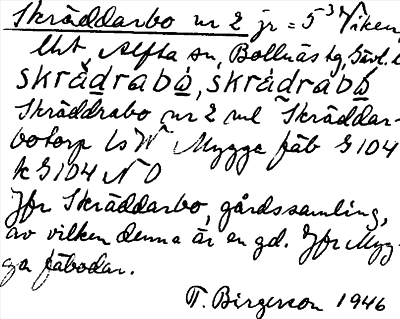 Skräddarbo nr 2 jr = 5³⁄₄ Viken,
Uht Alfta sn, Bollnäs tg, Gävl. l.
skrädrabo, skrädrabo
Skräddrabo nr 2 ml Skräddar-
botorp ls W Mygga fäb G 104
k G 104 N O
Jfr Skräddarbo, gårdssamling,
av vilken denna är en gd. Jfr Myg-
ga fäbodar.
T. Birgerson 1946